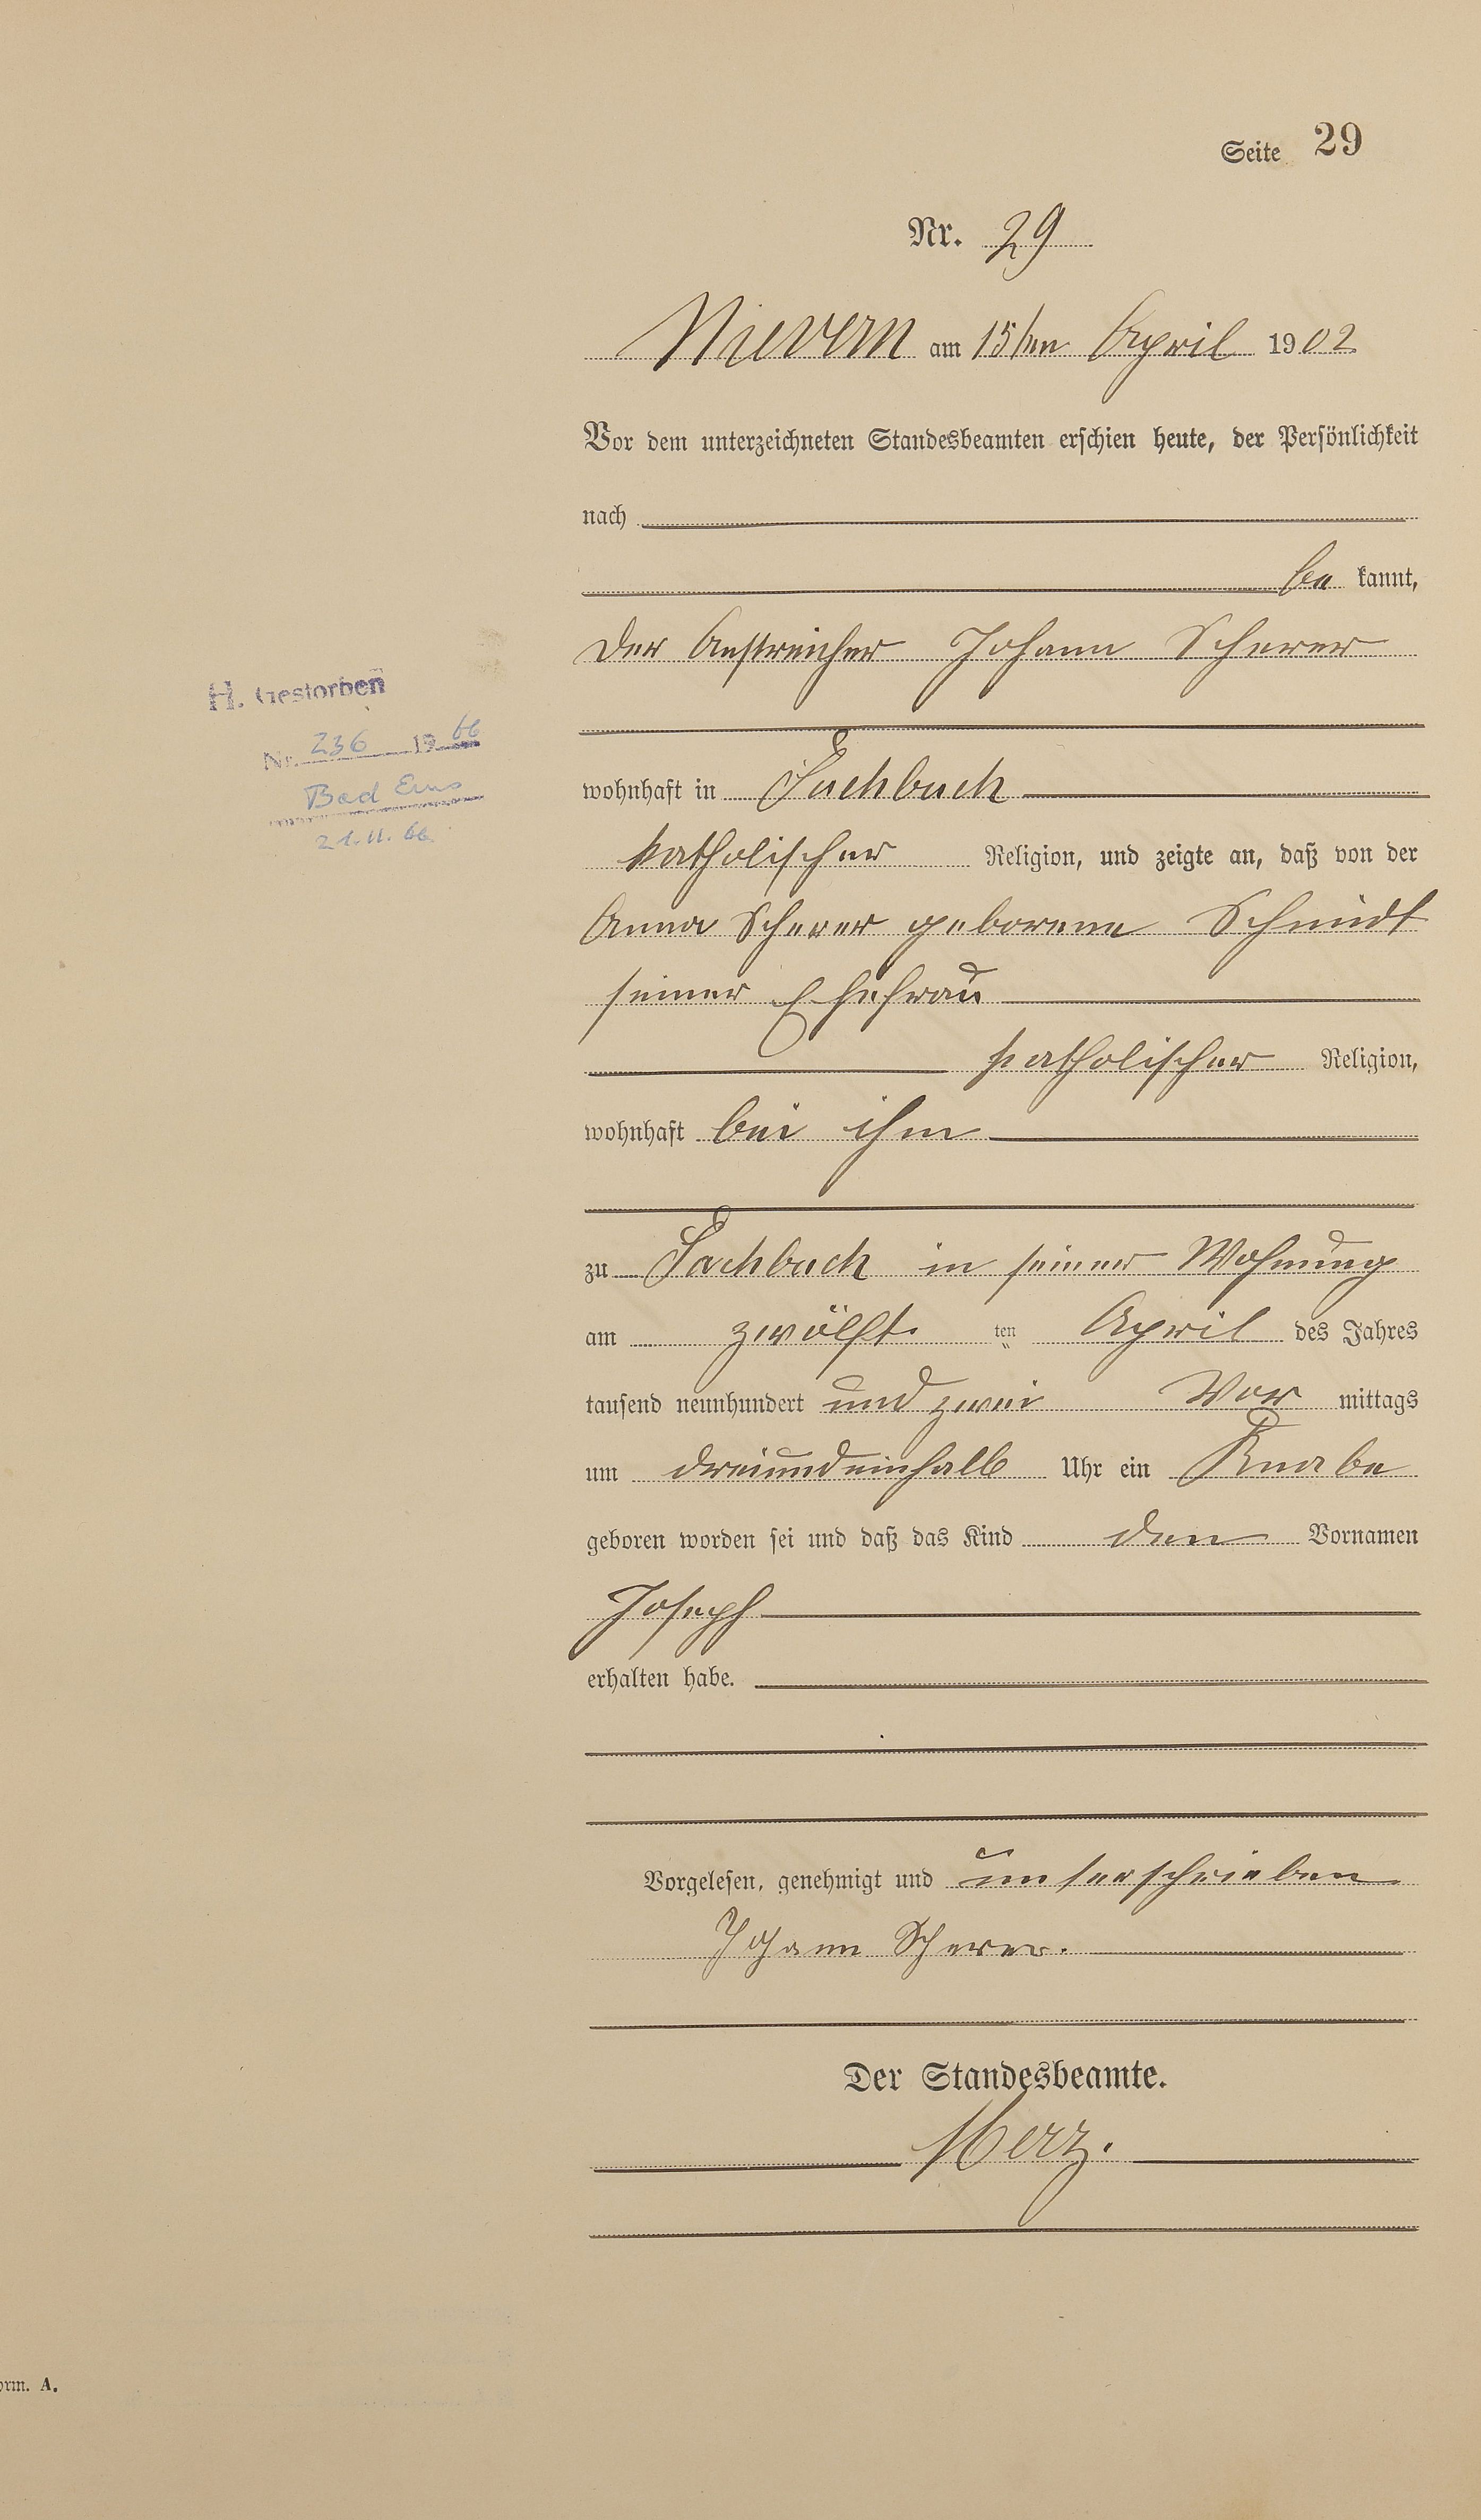 Seite 29
Nr. 29
Nievern am 15ten April 1902
Vor dem unterzeichneten Standesbeamten erschien heute, der Persönlichkeit
nach
be kannt,
der Anstreicher Johann Scherer
wohnhaft in Fachbach
katholischer Religion, und zeigte an, daß von der
Anna Scherer geborene Schmidt
seiner Ehefrau
katholischer Religion,
wohnhaft bei ihm
zu Fachbach in seiner Wohnung
am zwölft ten April des Jahres
tausend neunhundert und zwei Vor mittags
um dreiundeinhalb Uhr ein Knabe
geboren worden sei und daß das Kind den Vornamen
Joseph
erhalten habe.
Vorgelesen, genehmigt und unterschrieben
Johann Scherer.
Der Standesbeamte.
Merz.
H. Gestorben
Nr. 236 1966
Bad Ems
21.11.66.
orm. A.